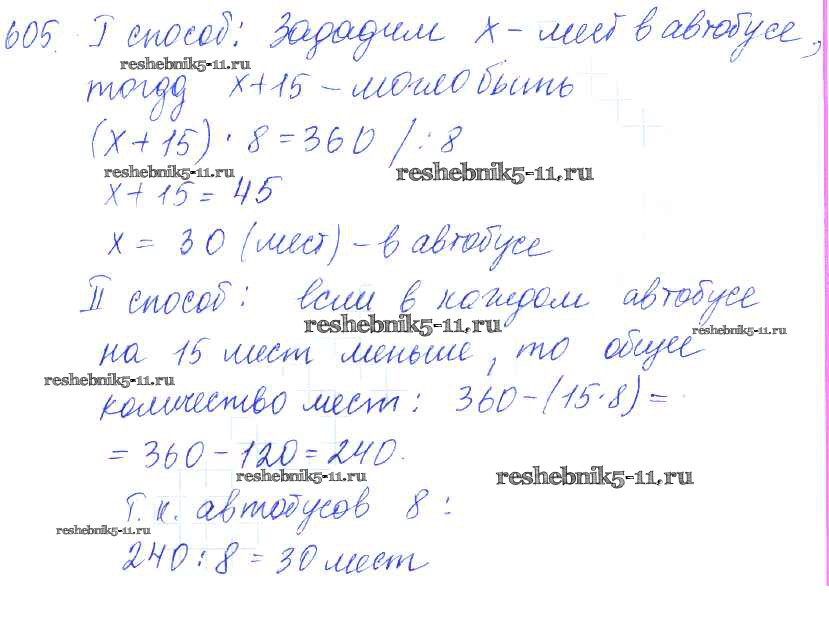 605. I способ: Зададим x – мест в автобусе,
reshebnik5-11.ru
тогда x+15 – могло быть
(x+15)·8=360 /:8
reshebnik5-11.ru reshebnik5-11.ru
x+15=45
x = 30 (мест) – в автобусе
II способ: если в каждом автобусе
reshebnik5-11.ru reshebnik5-11.ru
на 15 мест меньше, то общее
reshebnik5-11.ru
количество мест: 360–(15·8)=
=360–120=240.
reshebnik5-11.ru reshebnik5-11.ru
Т.к. автобусов 8:
reshebnik5-11.ru
240:8=30 мест